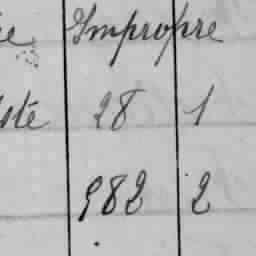 Impropre
28 1
982 2